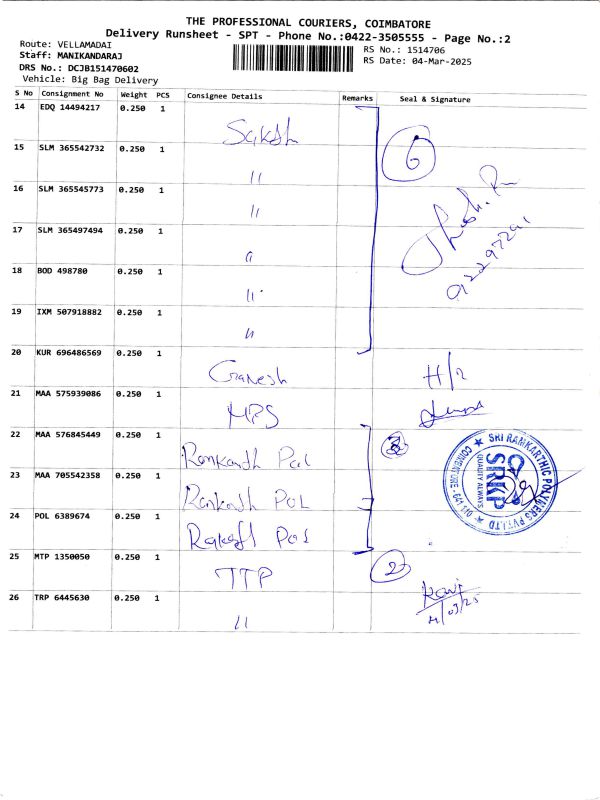 THE PROFESSIONAL COURIERS, COIMBATORE
Delivery Runsheet - SPT - Phone No.:0422-3505555 - Page No.:2
Route: VELLAMADAI
RS No.: 1514706
Staff: MANIKANDARAJ
RS Date: 04-Mar-2025
DRS No.: DCJB151470602
Vehicle: Big Bag Delivery
S No Consignment No Weight PCS Consignee Details Remarks Seal & Signature
14 EDQ 14494217 0.250 1
6
15 SLM 365542732 0.250 1 "
16 SLM 365545773 0.250 1 "
17 SLM 365497494 0.250 1 "
18 BOD 498780 0.250 1 "
19 IXM 507918882 0.250 1 "
20 KUR 696486569 0.250 1 Ganesh
21 MAA 575939086 0.250 1 MPS
22 MAA 576845449 0.250 1
23 MAA 705542358 0.250 1
24 POL 6389674 0.250 1
SRI RAMKARTHIC POLYMERS PVT.LTD
COIMBATORE - 641 110
SRKP
QUALITY ALWAYS
25 MTP 1350050 0.250 1 TTP 2
26 TRP 6445630 0.250 1 "